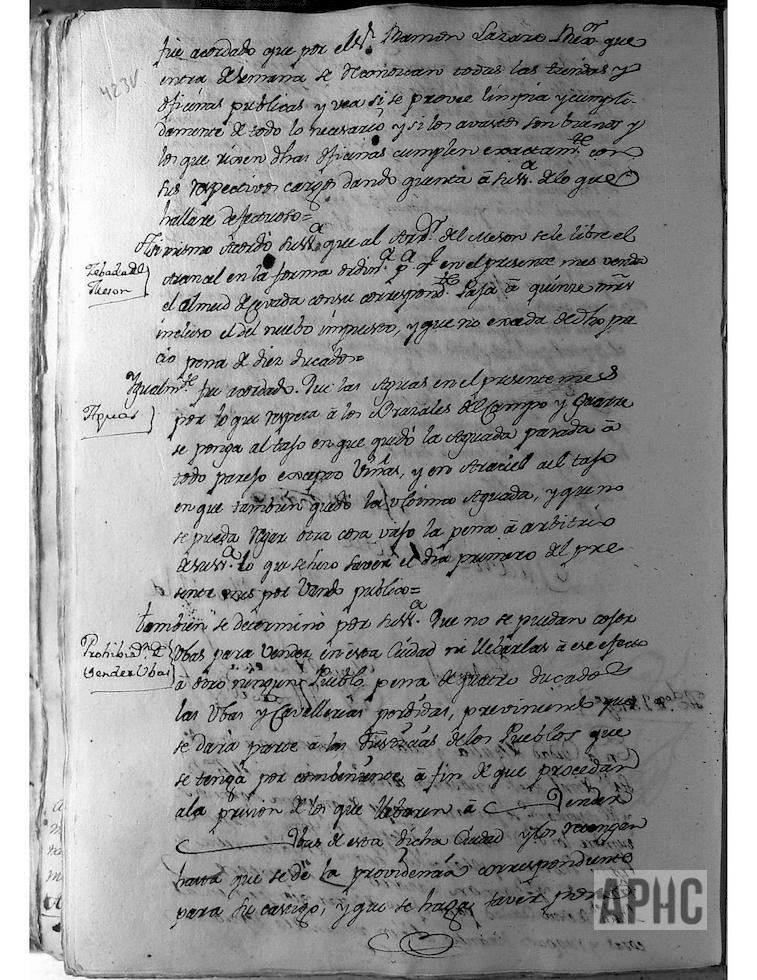 423V
fue acordado que por el Sr. Ramon Lazaro Rexor. que
entra de semana se reconozcan todas las tiendas y
oficinas publicas y vea si se provee limpia y cumpli-
damente de todo lo necesario y si los avastos son buenos y
los que rixen dhas oficinas cumplen exactamte. con
sus respectivos cargos dando quenta â su Sª. de lo que
hallare defectuoso=
Asimismo Acordó su Sª. que al Ardr. del Meson se le libre el
Zebada del
Meson
Aranzel en la forma ordinª. pª. qe en el presente mes venda
el almud de zevada con su correspondte. Paja â quinze mrs
incluso el del nuebo impuesto, y que no exceda de dho pre
cio pena de diez ducados=
Ygualmte. fue acordado. Que las Aguas en el presente mes
Aguas
por lo que respeta â los Brazales del Campo y
se ponga al taso en que quedó la Aguada pasada â
todo parejo excepto Viñas, y en Araciel al taso
en que tambien quedó la ultima Aguada, y que no
se pueda regar otra cosa vajo la pena â arbitrio
de su Sª. lo que se hizo saver el dia primero del pre
sente mes por Vando publico=
tambien se determinó por su Sª. Que no se puedan cojer
Prohibizn. de
vender Ubas
Ubas para vender en esta Ciudad ni llebarlas â ese efecto
â otro ningun Pueblo pena de quatro ducados
las Ubas y Cavallerias perdidas, previniendo que
se dará parte â las Justicias de los Pueblos que
se tenga por combeniente â fin de que procedan
a la prision de los que llebaren â Vender
Ubas de esta dicha Ciudad y los retengan
hasta que se dé la providencia correspondiente
para su castigo, y que se haga saver por
APHC